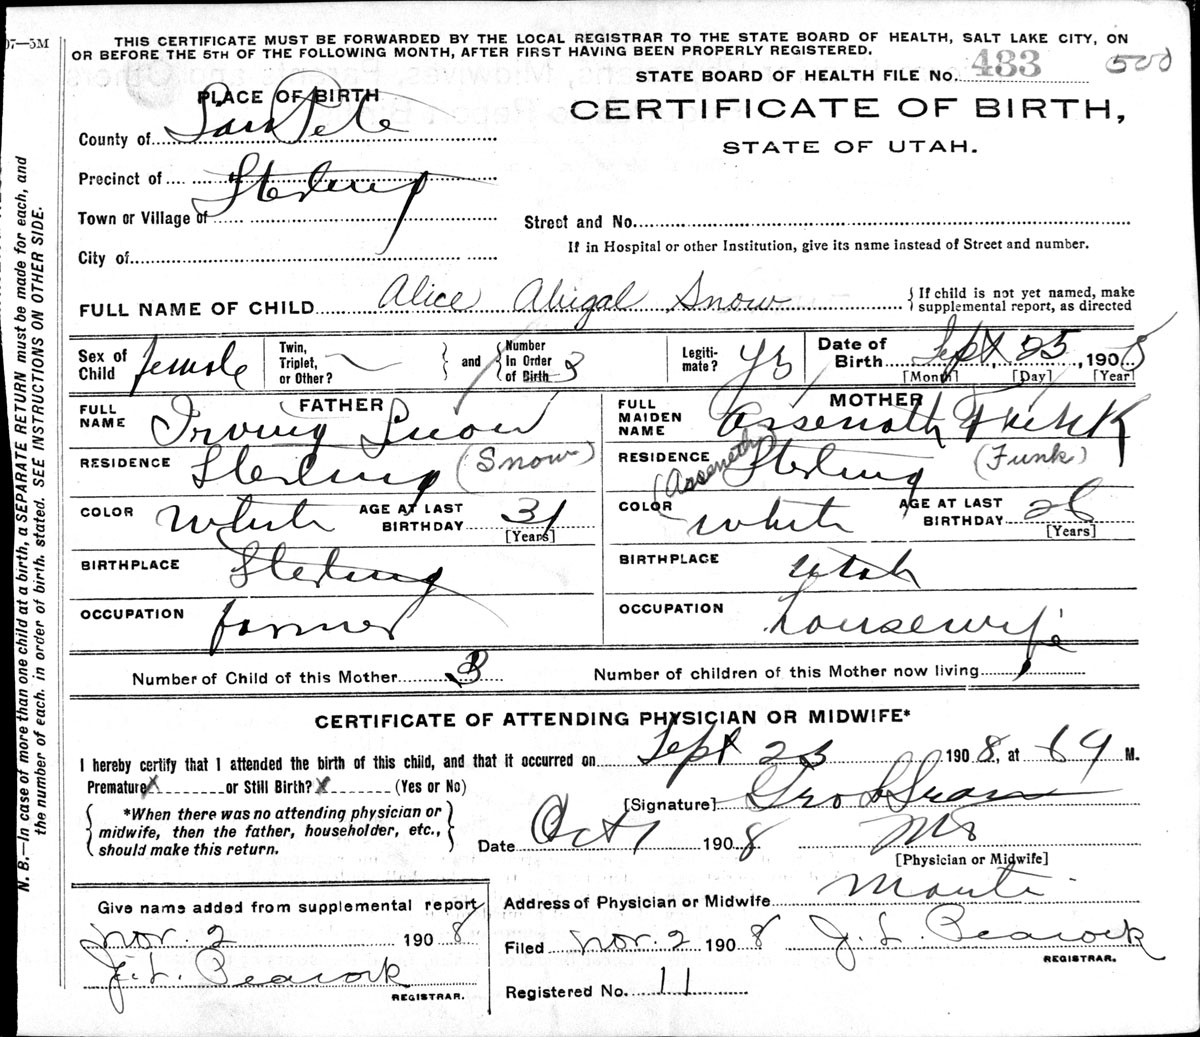 07—5M
THIS CERTIFICATE MUST BE FORWARDED BY THE LOCAL REGISTRAR TO THE STATE BOARD OF HEALTH, SALT LAKE CITY, ON
OR BEFORE THE 5TH OF THE FOLLOWING MONTH, AFTER FIRST HAVING BEEN PROPERLY REGISTERED.
STATE BOARD OF HEALTH FILE No. 433 500
PLACE OF BIRTH
CERTIFICATE OF BIRTH,
STATE OF UTAH.
County of SanPete
Precinct of Sterling
Town or Village of
Street and No.
If in Hospital or other Institution, give its name instead of Street and number.
City of
FULL NAME OF CHILD Alice Abigal Snow { If child is not yet named, make supplemental report, as directed
Sex of Child female Twin, Triplet, or Other? — } and { Number In Order of Birth 3 Legiti-mate? yes Date of Birth Sept 25, 1908
[Month] [Day] [Year]
FATHER
FULL NAME Irving Snow
RESIDENCE Sterling (Snow)
COLOR White AGE AT LAST BIRTHDAY 31 [Years]
BIRTHPLACE Sterling
OCCUPATION farmer
MOTHER
FULL MAIDEN NAME Arsenath Funk
RESIDENCE (Asseneth) Sterling (Funk)
COLOR White AGE AT LAST BIRTHDAY 26 [Years]
BIRTHPLACE Utah
OCCUPATION housewife
Number of Child of this Mother 3 Number of children of this Mother now living
CERTIFICATE OF ATTENDING PHYSICIAN OR MIDWIFE*
I hereby certify that I attended the birth of this child, and that it occurred on Sept 25 1908, at M.
Premature X or Still Birth? X (Yes or No)
{ *When there was no attending physician or midwife, then the father, householder, etc., should make this return. }
[Signature]
Date Oct 1 1908
[Physician or Midwife]
Address of Physician or Midwife Manti
Give name added from supplemental report
Nov. 2 1908
J. L. Peacock
REGISTRAR.
Filed Nov. 2 1908 J. L. Peacock
REGISTRAR.
Registered No. 11
N. B.—In case of more than one child at a birth, a SEPARATE RETURN must be made for each, and
the number of each, in order of birth, stated. SEE INSTRUCTIONS ON OTHER SIDE.